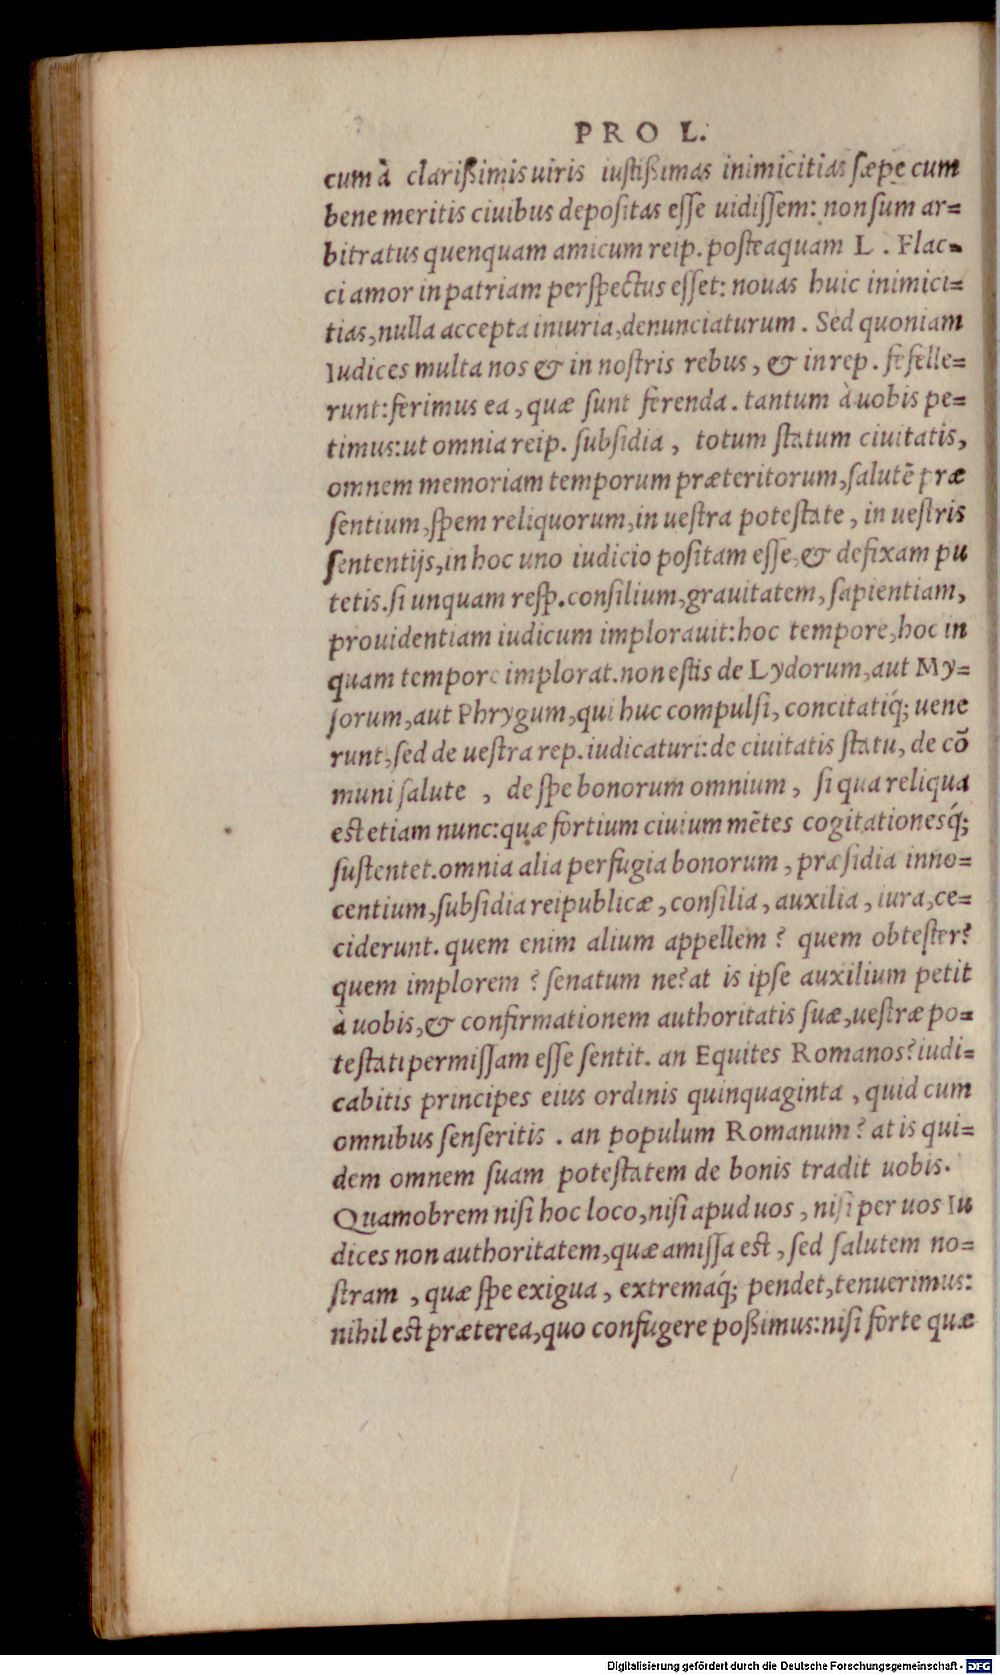 PRO L.
cum à clarißimis uiris iustißimas inimicitias sæpe cum
bene meritis ciuibus depositas esse uidissem: non sum ar=
bitratus quenquam amicum reip. posteaquam L. Flac=
ci amor in patriam perspectus esset: nouas huic inimici=
tias, nulla accepta iniuria, denunciaturum. Sed quoniam
Iudices multa nos & in nostris rebus, & in rep. fefelle=
runt: ferimus ea, quæ sunt ferenda. tantum à uobis pe=
timus: ut omnia reip. subsidia, totum statum ciuitatis,
omnem memoriam temporum præteritorum, salutē præ
sentium, spem reliquorum, in uestra potestate, in uestris
sententijs, in hoc uno iudicio positam esse, & defixam pu
tetis. si unquam resp. consilium, grauitatem, sapientiam,
prouidentiam iudicum implorauit: hoc tempore, hoc in
quam tempore implorat. non estis de Lydorum, aut My=
sorum, aut Phrygum, qui huc compulsi, concitatiq́; uene
runt, sed de uestra rep. iudicaturi: de ciuitatis statu, de cō
muni salute, de spe bonorum omnium, si qua reliqua
est etiam nunc: quæ fortium ciuium mētes cogitationesq́;
sustentet. omnia alia perfugia bonorum, præsidia inno=
centium, subsidia reipublicæ, consilia, auxilia, iura, ce=
ciderunt. quem enim alium appellem? quem obtester?
quem implorem? senatum ne? at is ipse auxilium petit
à uobis, & confirmationem authoritatis suæ, uestræ po=
testati permissam esse sentit. an Equites Romanos? iudi=
cabitis principes eius ordinis quinquaginta, quid cum
omnibus senseritis. an populum Romanum? at is qui=
dem omnem suam potestatem de bonis tradit uobis.
Quamobrem nisi hoc loco, nisi apud uos, nisi per uos Iu
dices non authoritatem, quæ amissa est, sed salutem no=
stram, quæ spe exigua, extremaq́; pendet, tenuerimus:
nihil est præterea, quo confugere poßimus: nisi forte quæ
Digitalisierung gefördert durch die Deutsche Forschungsgemeinschaft - DFG